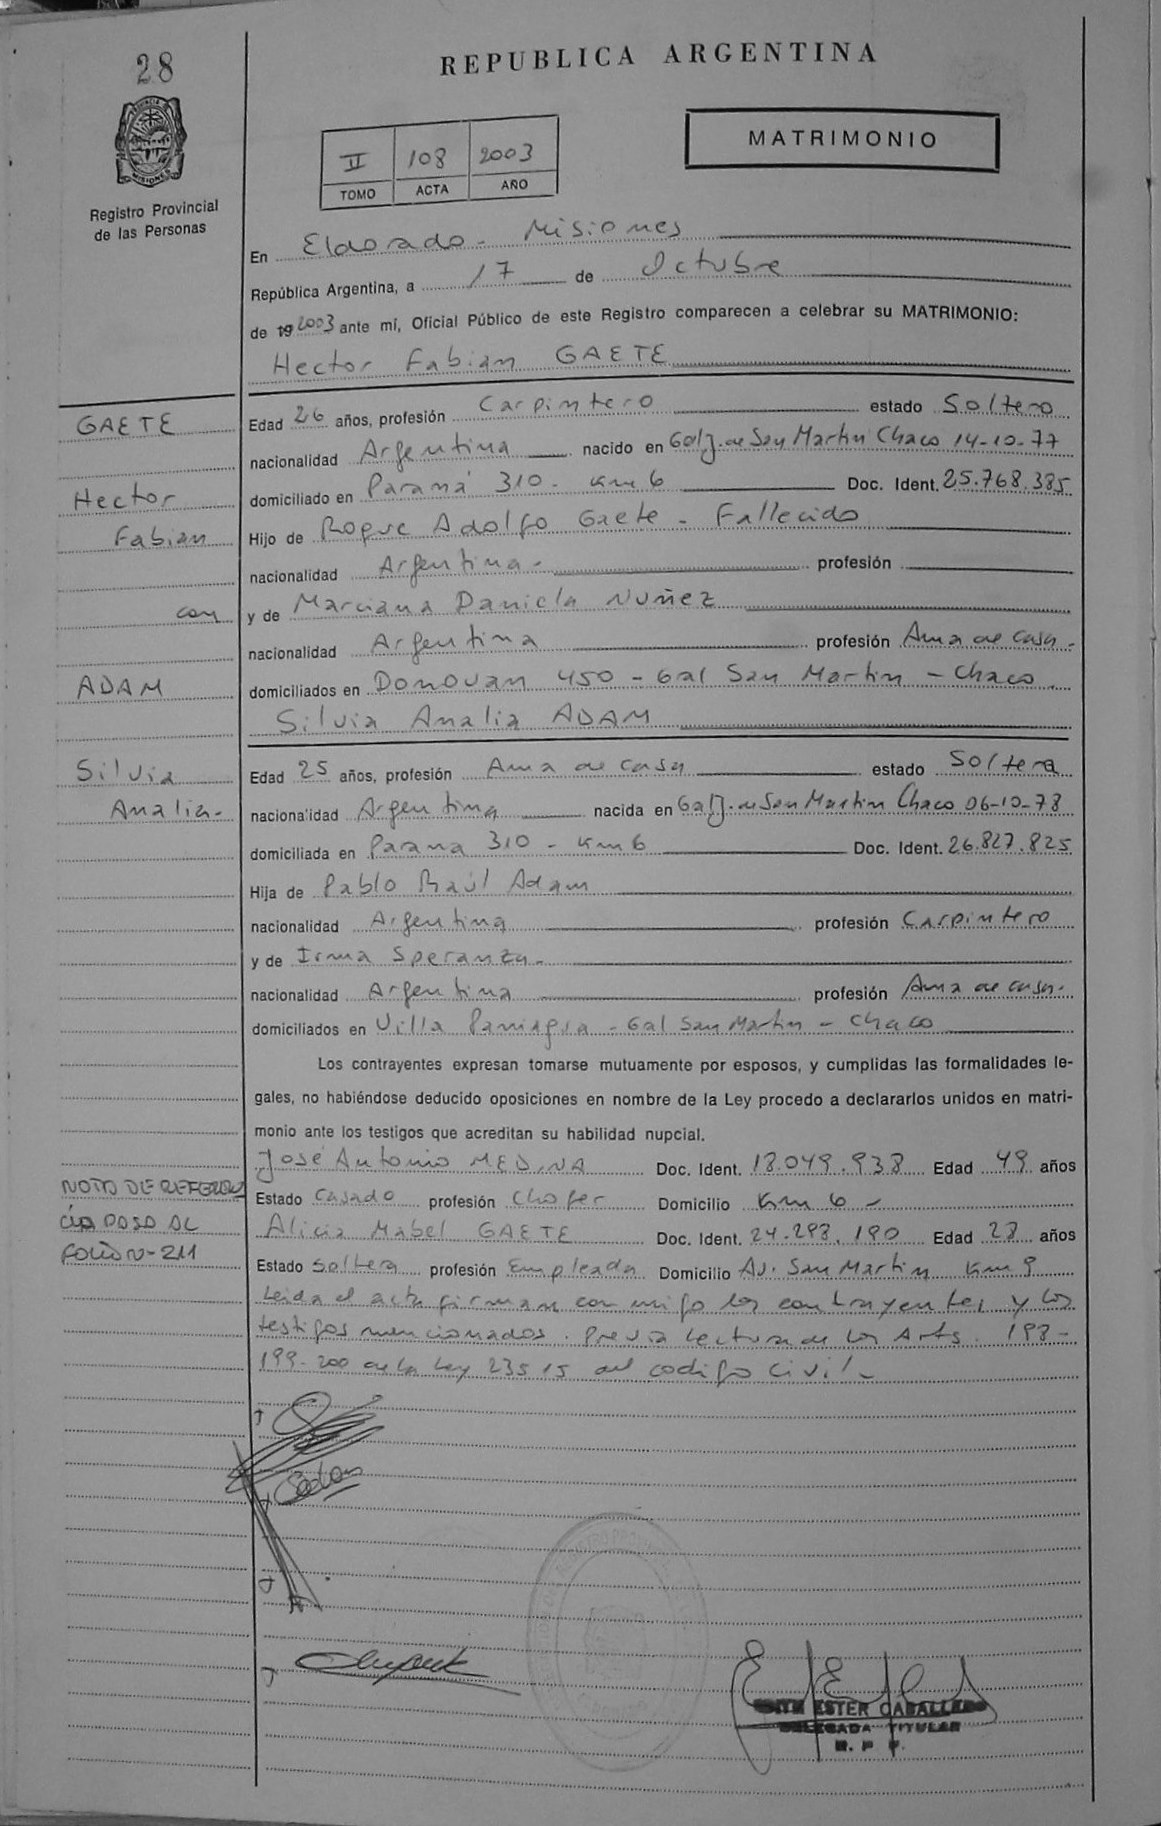 28
REPUBLICA ARGENTINA
MATRIMONIO
II 108 2003
TOMO ACTA AÑO
PROVINCIA DE MISIONES
Registro Provincial
de las Personas
En Eldorado - Misiones
República Argentina, a 17 de Octubre
de 19 2003 ante mí, Oficial Público de este Registro comparecen a celebrar su MATRIMONIO:
Hector Fabian GAETE
GAETE
Hector
Fabian
con
ADAM
Silvia
Analia-
Edad 26 años, profesión Carpintero estado Soltero
nacionalidad Argentina nacido en Gral J. de San Martin Chaco 14-10-77
domiciliado en Paraná 310 - Km 6 Doc. Ident. 25.768.385
Hijo de Roque Adolfo Gaete - Fallecido
nacionalidad Argentina - profesión
y de Marciana Daniela Nuñez
nacionalidad Argentina profesión Ama de casa -
domiciliados en Donovan 450 - Gal San Martin - Chaco.
Silvia Analia ADAM
Edad 25 años, profesión Ama de casa estado Soltera
nacionalidad Argentina nacida en Gal J. de San Martin Chaco 06-10-78
domiciliada en Parana 310 - Km 6 Doc. Ident. 26.827.825
Hija de Pablo Raúl Adam
nacionalidad Argentina profesión Carpintero
y de Irma Speranza -
nacionalidad Argentina profesión Ama de casa -
domiciliados en Villa - Gal San Martin - Chaco
Los contrayentes expresan tomarse mutuamente por esposos, y cumplidas las formalidades le-
gales, no habiéndose deducido oposiciones en nombre de la Ley procedo a declararlos unidos en matri-
monio ante los testigos que acreditan su habilidad nupcial.
José Antonio MEDINA Doc. Ident. 18.049.938 Edad 49 años
Estado Casado profesión Chofer Domicilio Km 6 -
Alicia Mabel GAETE Doc. Ident. 24.298.190 Edad 28 años
Estado Soltera profesión Empleada Domicilio Av. San Martin Km 9
NOTA DE REFEREN
CIA PASA AL
FOLIO N-211
Leida el acta firman con migo los contrayentes y los
testigos mencionados. Previa Lectura de los Arts. 198-
199-200 de la Ley 23515 del codigo civil -
EDITH ESTER CABALLERO
DELEGADA TITULAR
R. P. P.